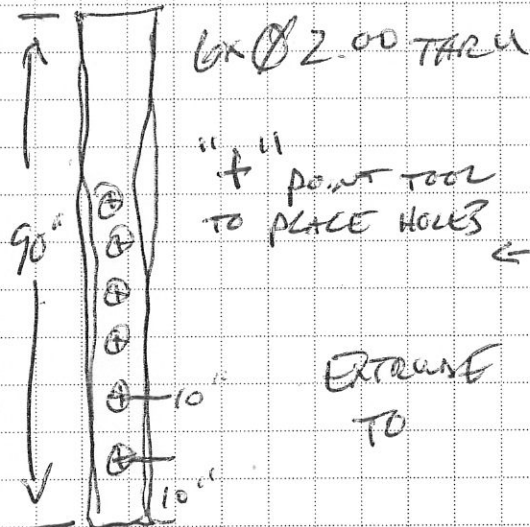 6x Ø2.00 THRU
"+" POINT TOOL
TO PLACE HOLES
←
90"
EXTRUDE
TO
10"
10"